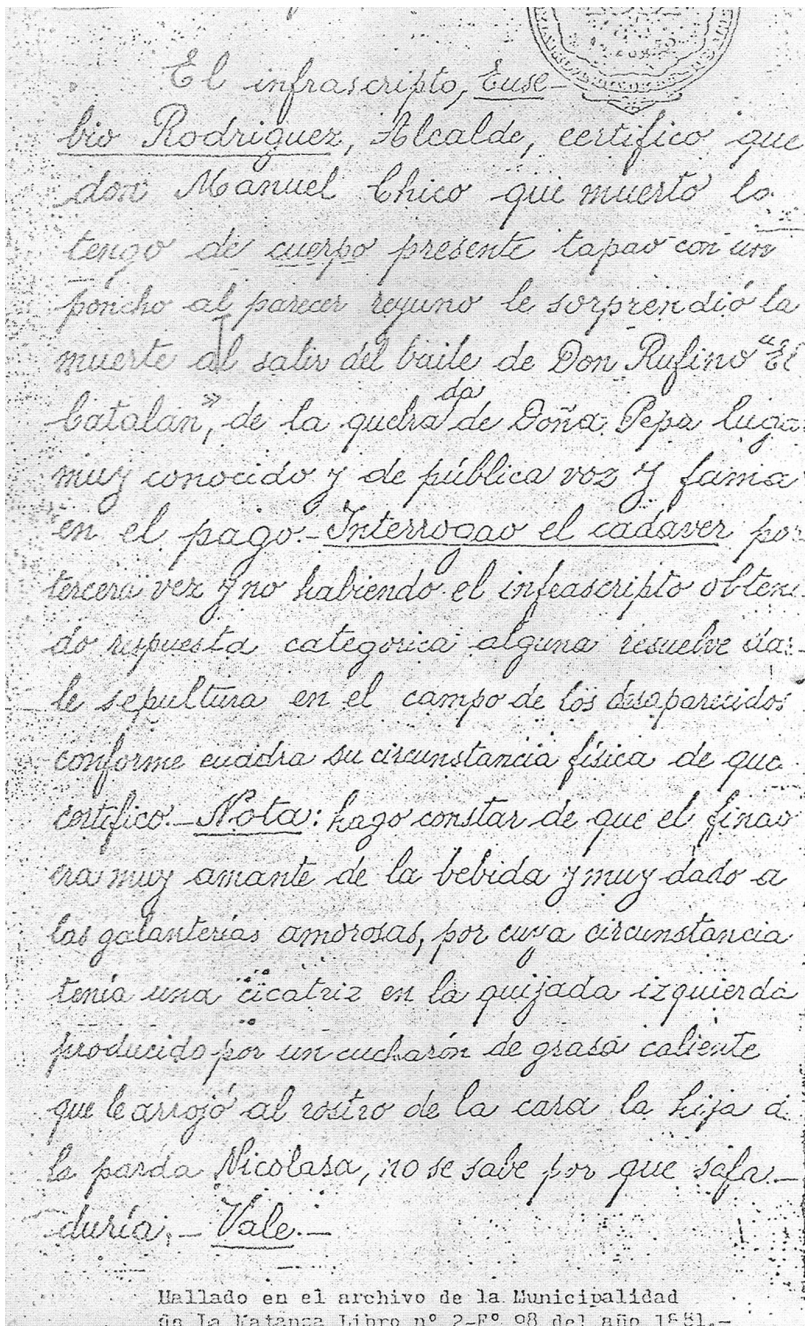 El infrascripto, Euse-
bio Rodriguez, Alcalde, certifico que
don Manuel Chico que muerto lo
tengo de cuerpo presente tapao con un
poncho al parecer reyuno le sorprendió la
muerte al salir del baile de Don Rufino "El
Catalan", de la quebrada de Doña Pepa luga
muy conocido y de pública voz y fama
en el pago.- Interrogao el cadaver por
tercera vez y no habiendo el infrascripto obteni
do respuesta categorica alguna resuelve dar-
le sepultura en el campo de los desaparecidos
conforme cuadra su circunstancia física de que
certifico.- Nota: hago constar de que el finao
era muy amante de la bebida y muy dado a
las galanterías amorosas, por cuya circunstancia
tenía una cicatriz en la quijada izquierda
producido por un cucharón de grasa caliente
que le arrojó al rostro de la cara la hija e
la parda Nicolasa, no se sabe por que safa-
duría.- Vale.-
Hallado en el archivo de la Municipalidad
de La Matanza Libro nº 2-Fº 98 del año 1881.-